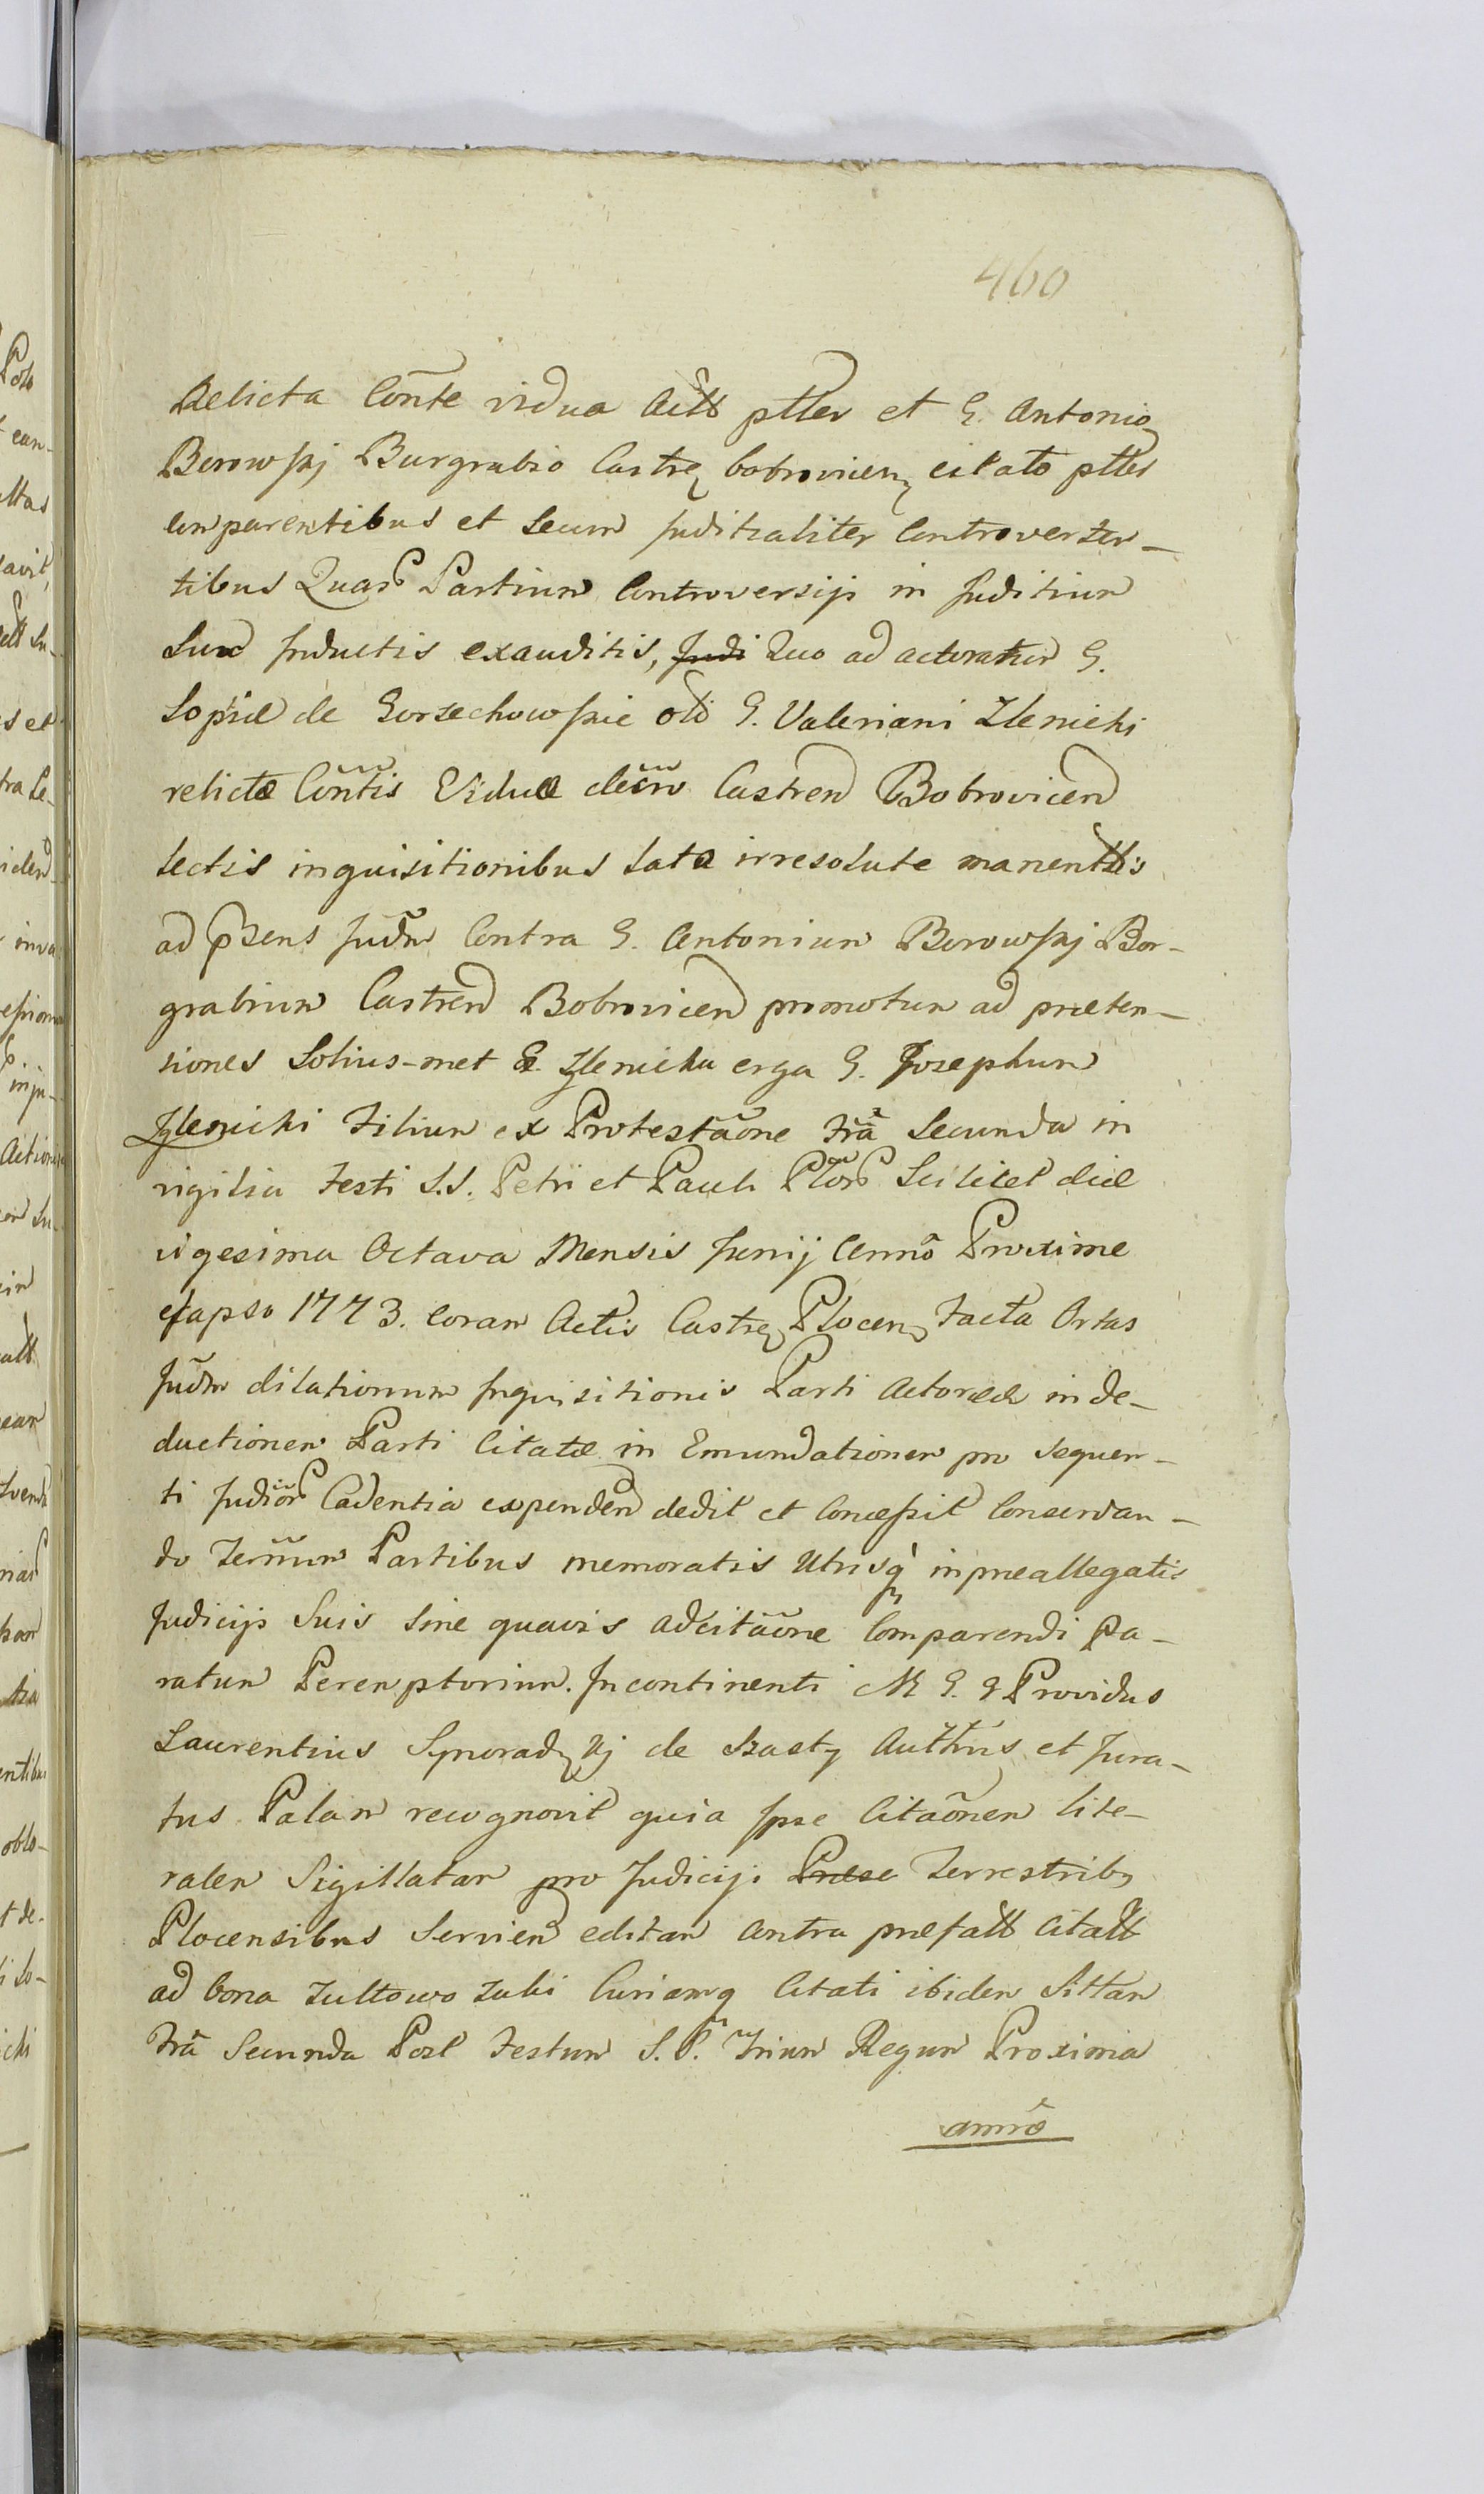 460
Relicta Cõnte vidua Actt ptter et G. Antonio
Borowskj Burgrabio Castre bobrovicen citato ptter
comparentibus et secum Juditialiter Controverten-
tibus Quar Partium Controversijs in Juditium
Suum Inductis exauditis, Judi Quo ad actoratum G.
Sophiæ de Gorzechowskie old G. Valeriani Zlenicki
relictæ Cõntis Viduæ decrw Castren Bobrovicen
lectis inquisitionibus latæ irresolute manentis
ad psens Judm Contra G. Antonium Borowskj Bor-
grabium Castren Bobrovicen promotum ad præten-
siones Solius-met G. Zlenicka erga G. Josephum
Zglenicki Filium ex Protestãone Fra Secunda in
vigilia Festi S.S. Petri et Pauli Plor Scilicet die
vigesima Octava Mensis Junij Anno Proxime
elapso 1773. coram Actis Castre Plocen facta Ortas
Judm dilationum Inquisitionis Parti Actoreæ in de-
ductionem Parti Citatæ in Emundationem pro sequen-
ti Judior Cadentia expenden dedit et Concessit Conservan-
do Termm Partibus memoratis Utrisq in præallegatis
Judicijs Suis sine quavis adcitãone Comparendi Pa-
ratum Peremptorium. Incontinenti M G. & Providus
Laurentius Synoradzkj de Szasty Authus et Jura-
tus Palam recognovit quia Ipse Citãonem lite-
ralem Sigillatam pro Judicijs Præse Terrestrib
Plocensibus Servien editam Contra præfatt Citatt
ad bona Zultowo Zabi Curiamq Citati ibidem Sittam
Fra Secunda Post Festum S.S. Trium Regum Proxima
anno